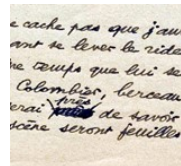 e cache pas que j'aim
ant se lever le ride
ne temps que lui se
Colombier, berceau
erai près de savoir
scène seront feuilles